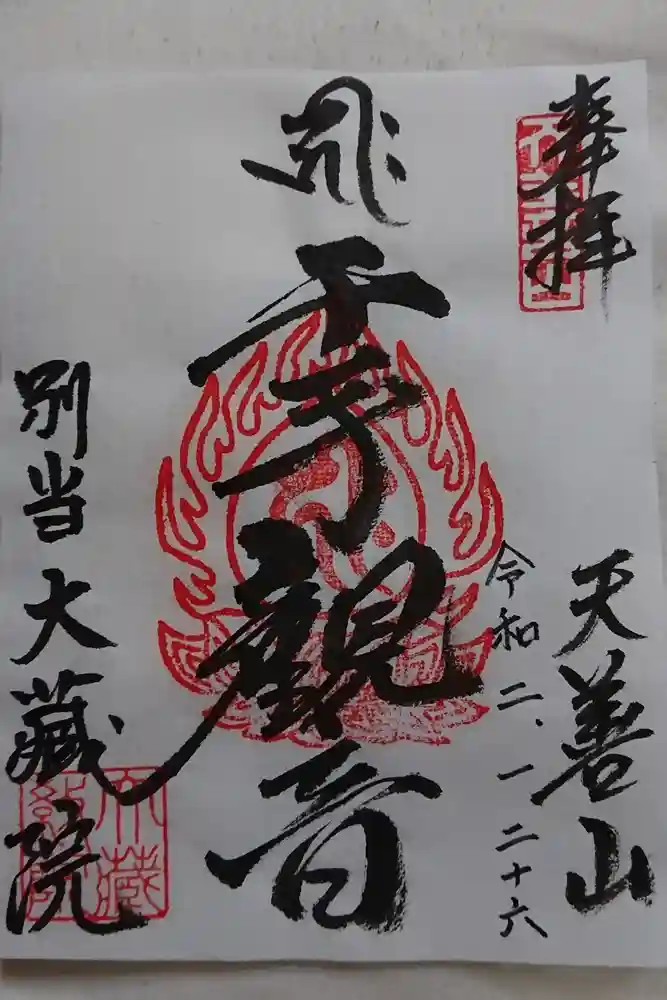 奉拝
天善山
令和二.一.二十六
千手觀音
別当大藏院
大藏